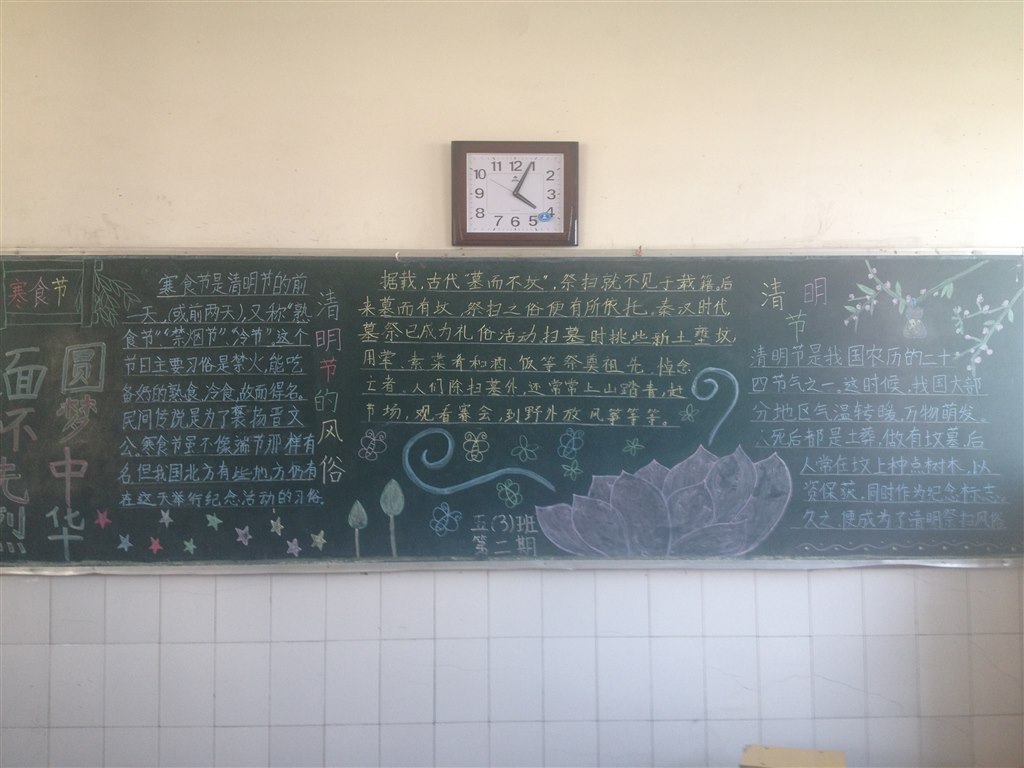 寒食节
圆梦中华
寒食节是清明节的前
一天(或前两天),又称"熟
食节""禁烟节""冷节",这个
节日主要习俗是禁火,能吃
的熟食,冷食,故而得名。
民间传说是为了褒扬晋文
公,寒食节虽不像端节那样有
名,但我国北方有些地方仍有
在这天举行纪念活动的习俗.
清明节的风俗
据载,古代"墓而不坟",祭扫就不见于载籍,后
来墓而有坟,祭扫之俗便有所依托,秦汉时代,
墓祭已成为礼俗活动,扫墓时挑些新土垒坟,
用荤、素菜肴和酒、饭等祭奠祖先,悼念
亡者,人们除扫墓外,还常常上山踏青,赶
市场,观看赛会,到野外放风筝等等。
五(3)班
第二期
清明节
清明节是我国农历的二十
四节气之一,这时候,我国大部
分地区气温转暖,万物萌发。
死后都是土葬,做有坟墓,后
人常在坟上种点树木,以
资保荻,同时作为纪念标志。
久之,便成为了清明祭扫风俗
12
1
2
3
4
5
6
7
8
9
10
11